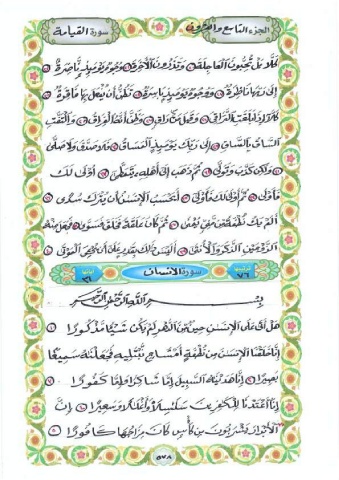 الجزء التاسع والعشرون
سورة القيامة
كَلَّا بَلْ تُحِبُّونَ الْعَاجِلَةَ وَتَذَرُونَ الْآخِرَةَ وُجُوهٌ يَوْمَئِذٍ نَّاضِرَةٌ
إِلَىٰ رَبِّهَا نَاظِرَةٌ وَوُجُوهٌ يَوْمَئِذٍ بَاسِرَةٌ تَظُنُّ أَن يُفْعَلَ بِهَا فَاقِرَةٌ
كَلَّا إِذَا بَلَغَتِ التَّرَاقِيَ وَقِيلَ مَنْ رَاقٍ وَظَنَّ أَنَّهُ الْفِرَاقُ وَالْتَفَّتِ
السَّاقُ بِالسَّاقِ إِلَىٰ رَبِّكَ يَوْمَئِذٍ الْمَسَاقُ فَلَا صَدَّقَ وَلَا صَلَّىٰ
وَلَٰكِن كَذَّبَ وَتَوَلَّىٰ ثُمَّ ذَهَبَ إِلَىٰ أَهْلِهِ يَتَمَطَّىٰ أَوْلَىٰ لَكَ
فَأَوْلَىٰ ثُمَّ أَوْلَىٰ لَكَ فَأَوْلَىٰ أَيَحْسَبُ الْإِنسَانُ أَن يُتْرَكَ سُدًى
أَلَمْ يَكُ نُطْفَةً مِّن مَّنِيٍّ يُمْنَىٰ ثُمَّ كَانَ عَلَقَةً فَخَلَقَ فَسَوَّىٰ فَجَعَلَ مِنْهُ
الزَّوْجَيْنِ الذَّكَرَ وَالْأُنثَىٰ أَلَيْسَ ذَٰلِكَ بِقَادِرٍ عَلَىٰ أَن يُحْيِيَ الْمَوْتَىٰ
ترتيبها ٧٦ سورة الإنسان آياتها ٣١
بِسْمِ اللَّهِ الرَّحْمَٰنِ الرَّحِيمِ
هَلْ أَتَىٰ عَلَى الْإِنسَانِ حِينٌ مِّنَ الدَّهْرِ لَمْ يَكُن شَيْئًا مَّذْكُورًا ١
إِنَّا خَلَقْنَا الْإِنسَانَ مِن نُّطْفَةٍ أَمْشَاجٍ نَّبْتَلِيهِ فَجَعَلْنَاهُ سَمِيعًا
بَصِيرًا ٢ إِنَّا هَدَيْنَاهُ السَّبِيلَ إِمَّا شَاكِرًا وَإِمَّا كَفُورًا ٣
إِنَّا أَعْتَدْنَا لِلْكَافِرِينَ سَلَاسِلَا وَأَغْلَالًا وَسَعِيرًا ٤ إِنَّ
الْأَبْرَارَ يَشْرَبُونَ مِن كَأْسٍ كَانَ مِزَاجُهَا كَافُورًا ٥
٥٧٨